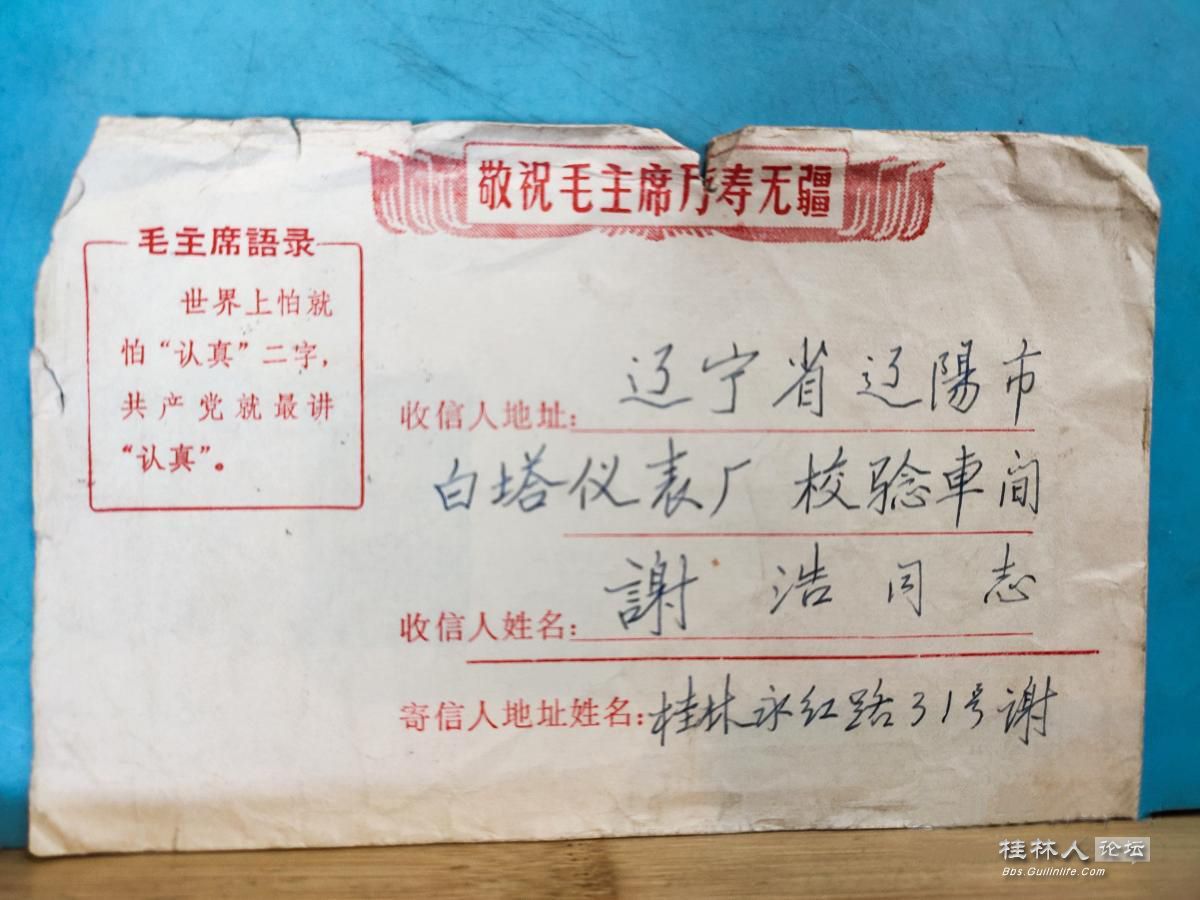 敬祝毛主席万寿无疆
毛主席語录
世界上怕就
怕“认真”二字，
共产党就最讲
“认真”。
收信人地址：辽宁省辽陽市
白塔仪表厂 校验車间
收信人姓名：謝浩同志
寄信人地址姓名：桂林永红路31号谢
桂林人论坛
Bbs.Guilinlife.Com